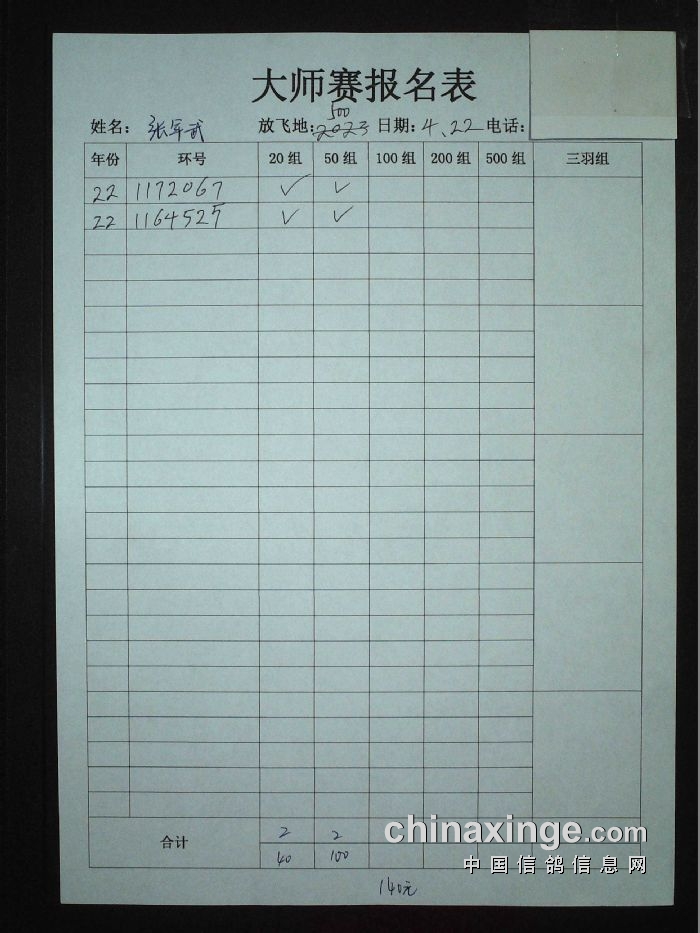 大师赛报名表
500
姓名：张军武 放飞地：2023 日期：4.22 电话：
年份 环号 20 组 50 组 100 组 200 组 500 组 三羽组
22 1172067 ✓ ✓
22 1164525 ✓ ✓
合计 2 2
40 100
140元
chinaxinge.com
中国信鸽信息网